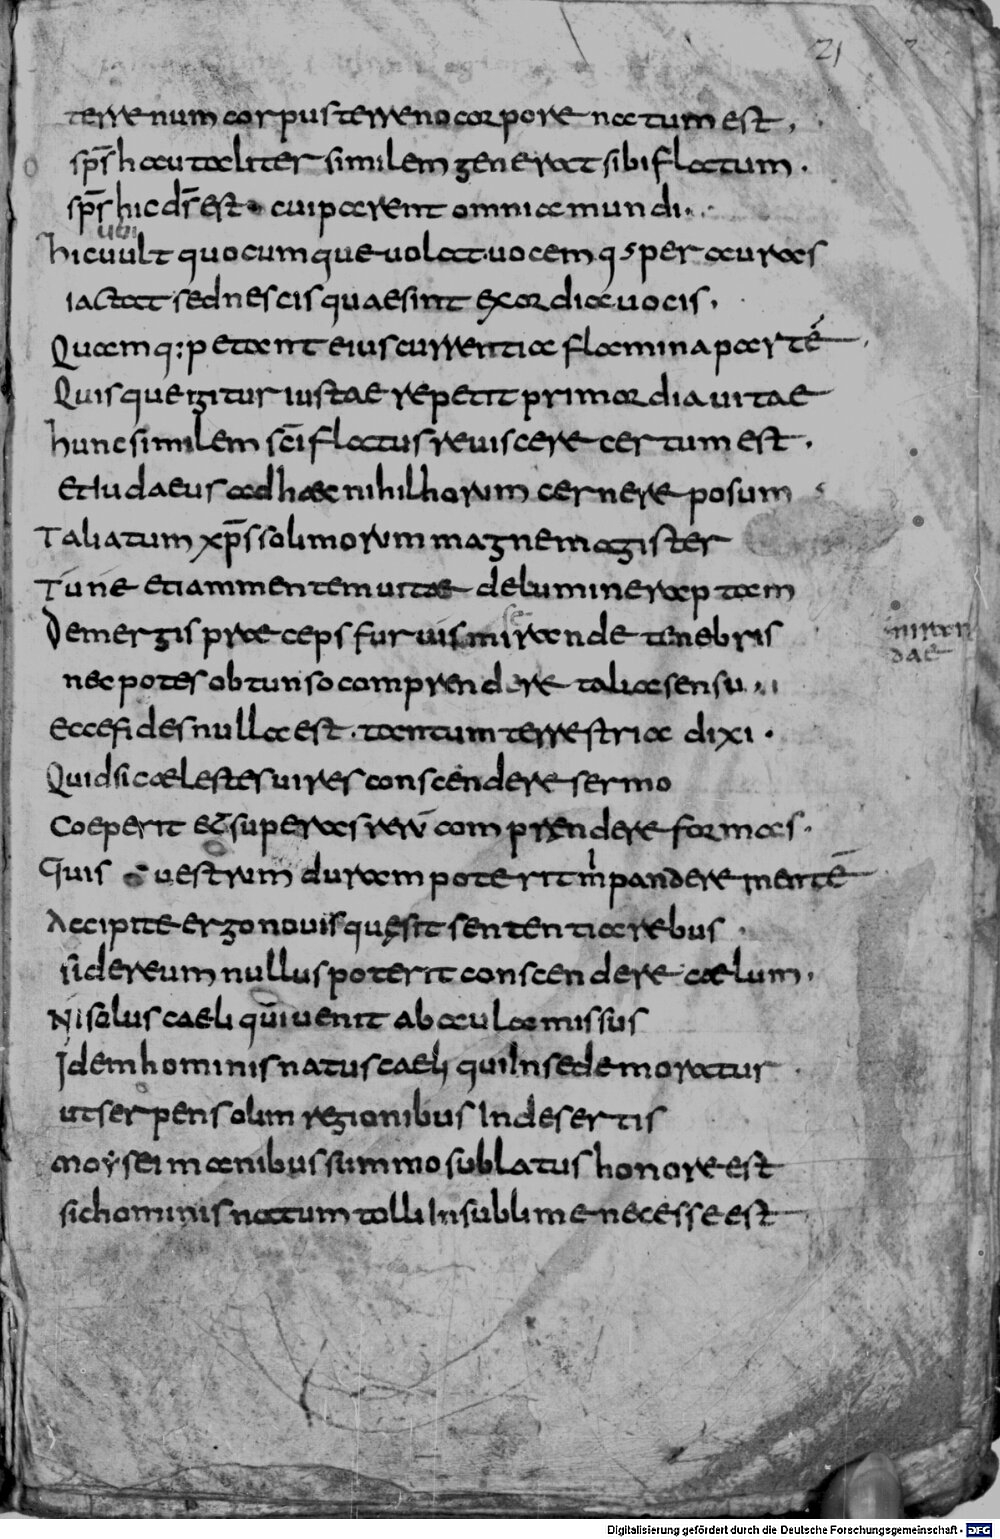 21
terrenum corpus terreno corpore natum est,
sp̄s hautaliter similem generat sibi flatum.
sp̄s hic ds̄ est cui parent omnia mundi.
ubi
hic uult quocumque uolat uocem q; per auras
iactat sed nescis quae sint exordia uocis.
Quamq: petant eius currentia flamina parte,
Quisque igitur iustae repetit primordia uitae
hunc similem sc̄i flatus reuiscere certum est.
et Iudaeus ad haec nihil horum cernere posum
Talia tum xp̄s solimorum magne magister
Tune etiam mentem uitae de lumine raptam
se
Demergis praeceps furuis mirande tenebris
miran
dae
nec potes obtunso comprendere talia sensu,
ecce fides nulla est. tantum terrestria dixi.
Quid si caelestes uires conscendere sermo
coeperit et superas rerū comprendere formas.
Quis uestrum duram poterit m pandere mentē
Accipite ergo nouis quę sit sententia rebus
sidereum nullus poterit conscendere caelum.
Ni solus caeli qui uenit ab aula missus
Idem hominis natus caeli qui In sede moratur
ut serpens olim regionibus In desertis
moysei manibus summo sublatus honore est
sic hominis natum tolli In sublime necesse est
Digitalisierung gefördert durch die Deutsche Forschungsgemeinschaft - DFG